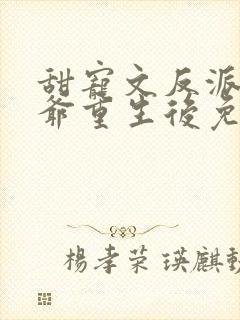 甜寵文反派
爺重生後免
楊孝荣 瑛麒